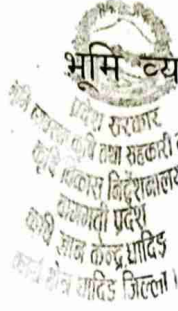 भूमि व्य
प्रदेश सरकार
भूमि व्यवस्था कृषि तथा सहकारी
कृषि विकास निर्देशनालय
बागमती प्रदेश
कृषि ज्ञान केन्द्र धादिङ
कार्य क्षेत्र धादिङ जिल्ला।